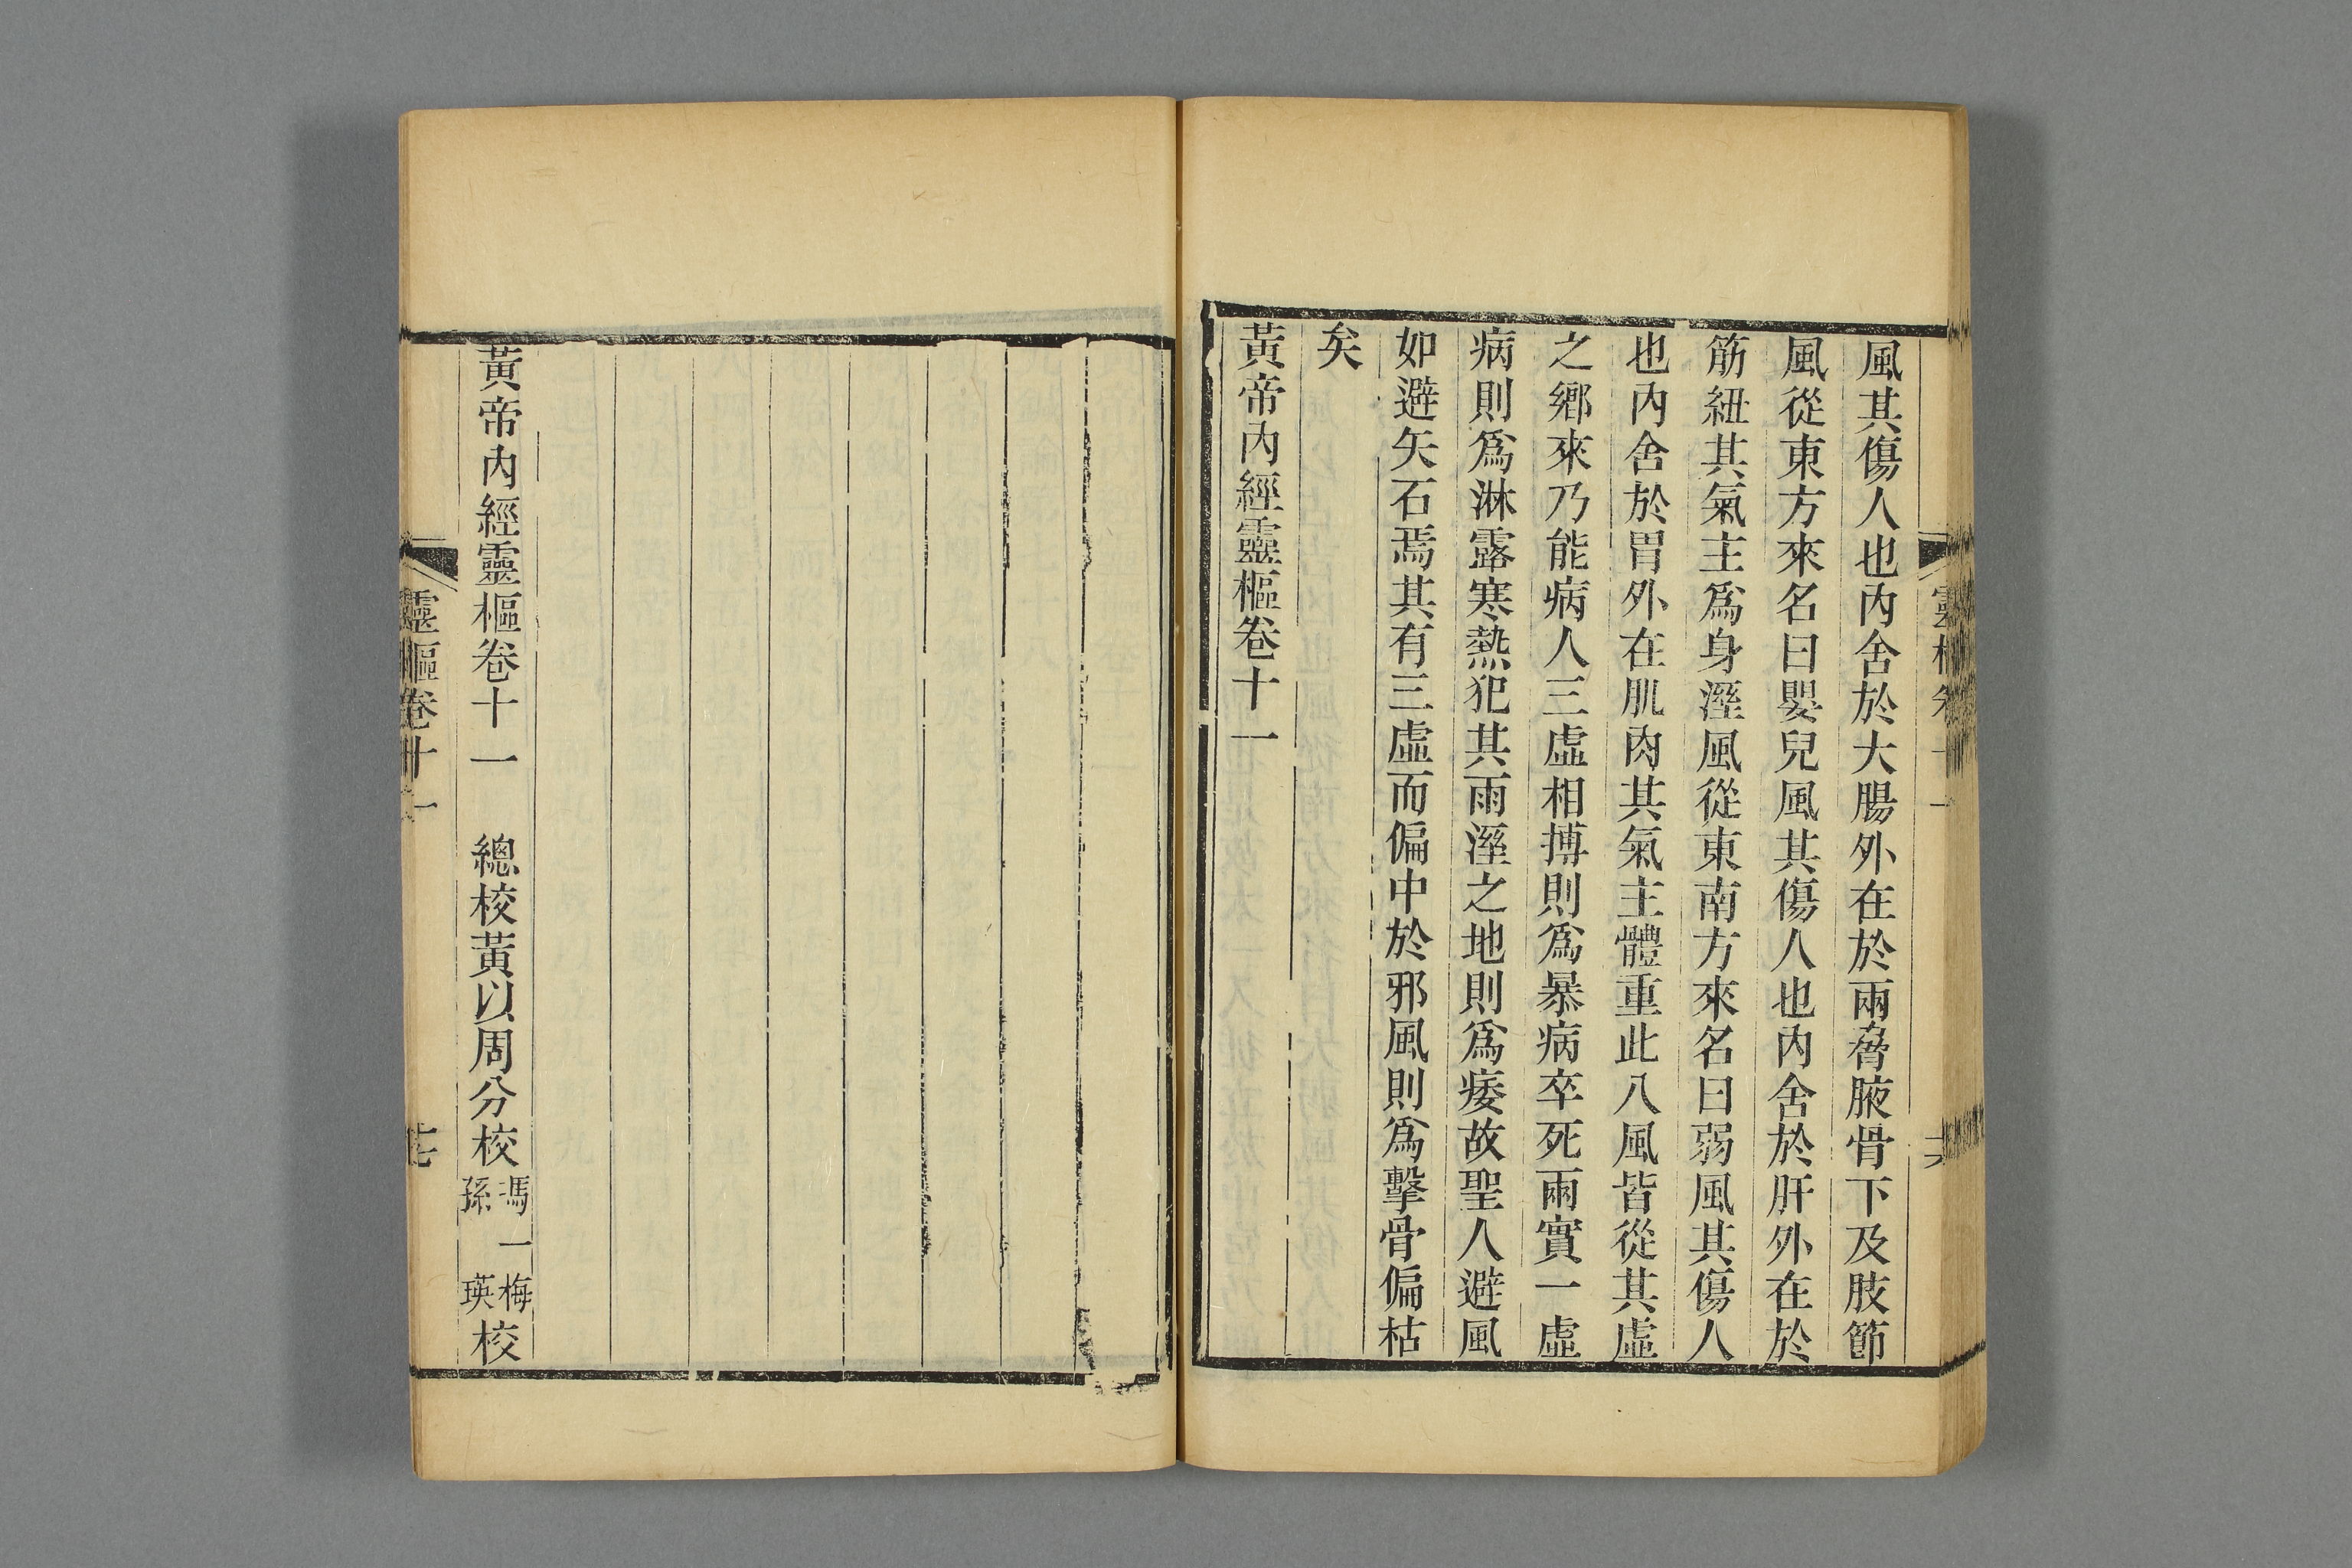 風其傷人也內舍於大腸外在於兩脅腋骨下及肢節
風從東方來名曰嬰兒風其傷人也內舍於肝外在於
筋紐其氣主爲身溼風從東南方來名曰弱風其傷人
也內舍於胃外在肌肉其氣主體重此八風皆從其虛
之鄉來乃能病人三虛相搏則爲暴病卒死兩實一虛
病則爲淋露寒熱犯其雨溼之地則爲痿故聖人避風
如避矢石焉其有三虛而偏中於邪風則爲擊骨偏枯
矣
黃帝內經靈樞卷十一
黃帝內經靈樞卷十一 總校黃以周分校 馮一梅 孫瑛 校
靈樞卷十一 十七